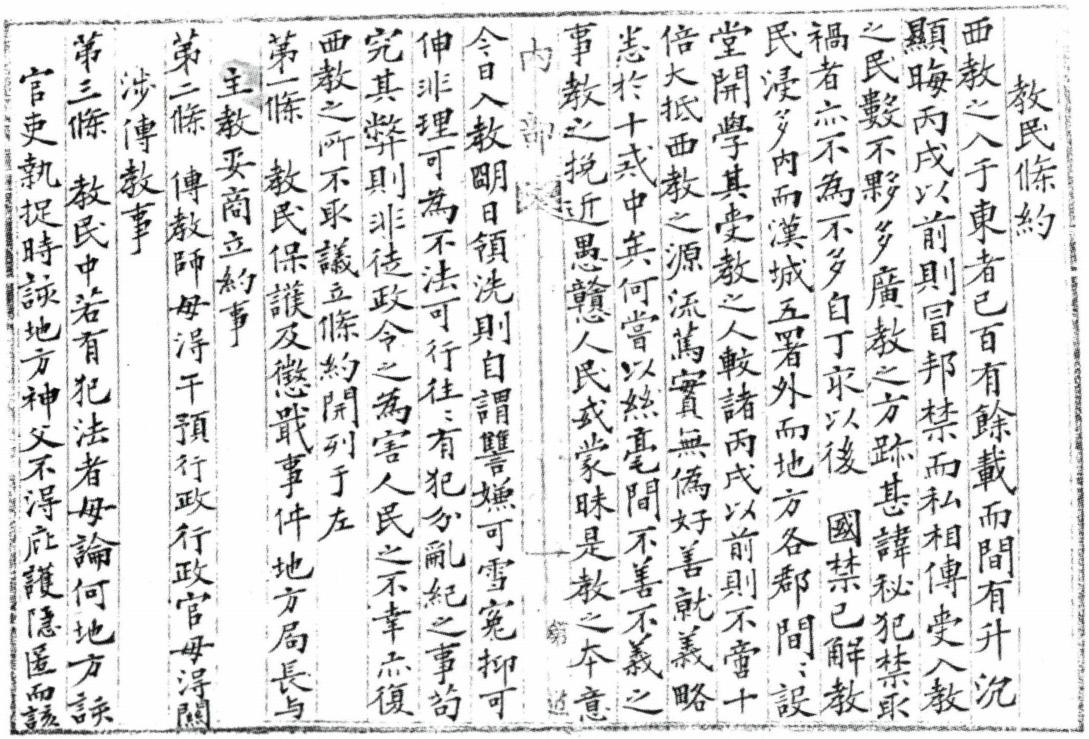 教民條約
西教之入于東者已百有餘載而間有升沉
顯晦丙戌以前則冒邦禁而私相傳受入教
之民數不夥多廣教之方跡甚諱秘犯禁取
禍者亦不為不多自丁亥以後　國禁已解教
民浸多內而漢城五署外而地方各郡間〻設
堂開學其受教之人較諸丙戌以前則不啻十
倍大抵西教之源流篤實無偽好善就義略
恙於十戒中矣何嘗以絲毫間不善不義之
事教之挽近愚贛人民或蒙昧是教之本意
內部
今日入教明日領洗則自謂讐嫌可雪寃抑可
伸非理可為不法可行往〻有犯分亂紀之事苟
究其弊則非徒政令之為害人民之不幸亦復
西教之所不取議立條約開列于左
第一條　教民保護及懲戢事件地方局長与
主教妥商立約事
第二條　傳教師毋得干預行政行政官毋得關
涉傳教事
第三條　教民中若有犯法者毋論何地方誒
官吏執捉時該地方神父不得庇護隱匿而該